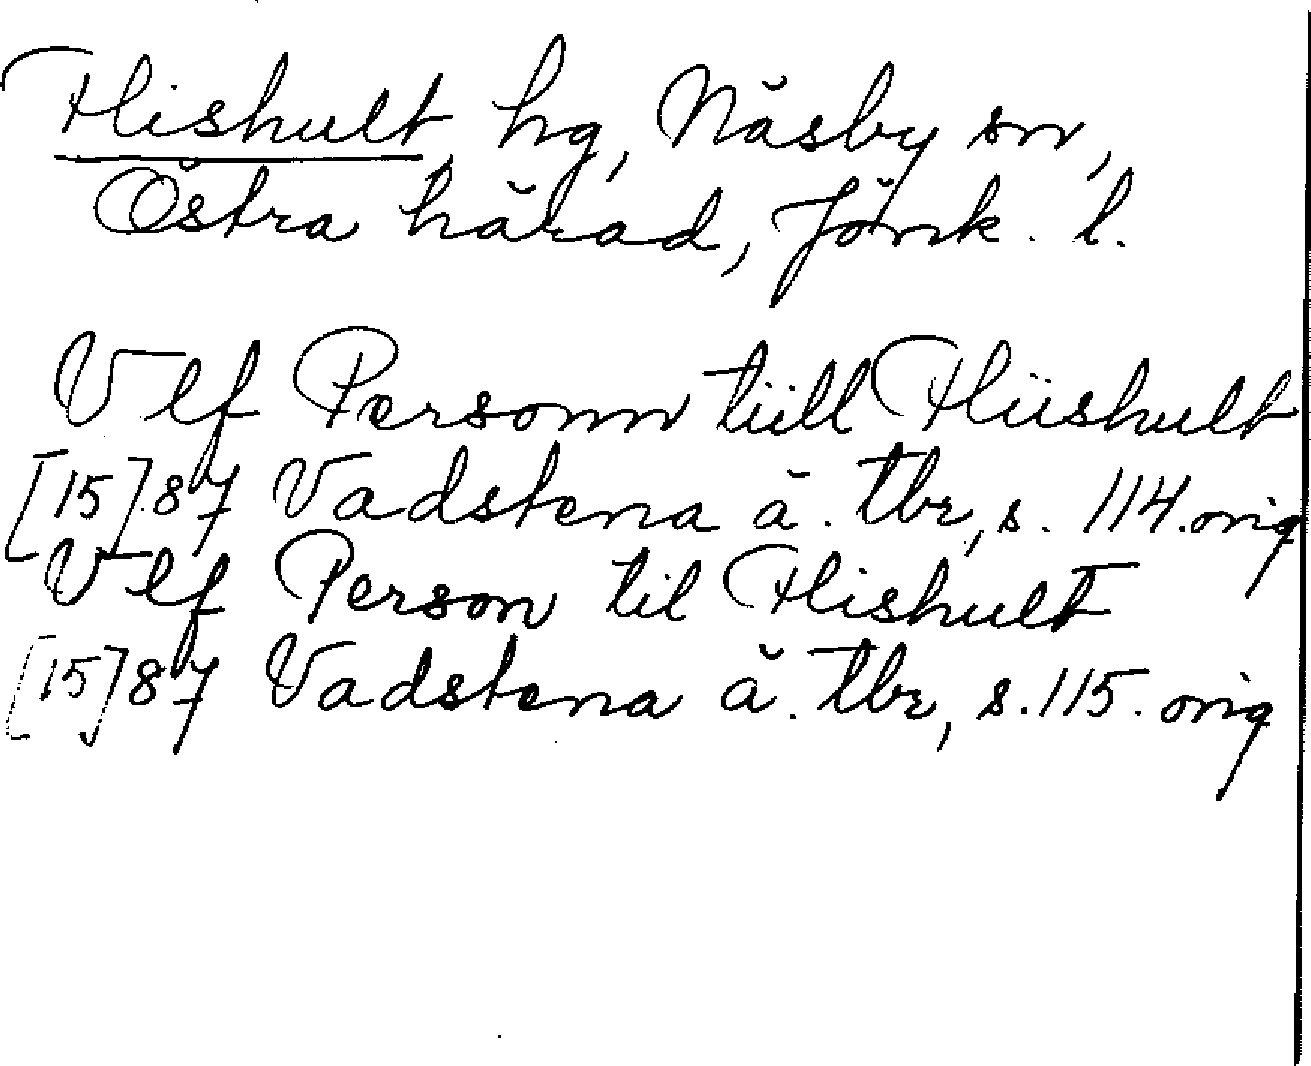 Hishult, hg, Näsby sn,
Östra härad, Jönk. l.
Vlf Personn tiill Hiishult
[15]87 Vadstena ä. tbr, s. 114. orig
Vlf Person til Hishult
[15]87 Vadstena ä. tbr, s. 115. orig